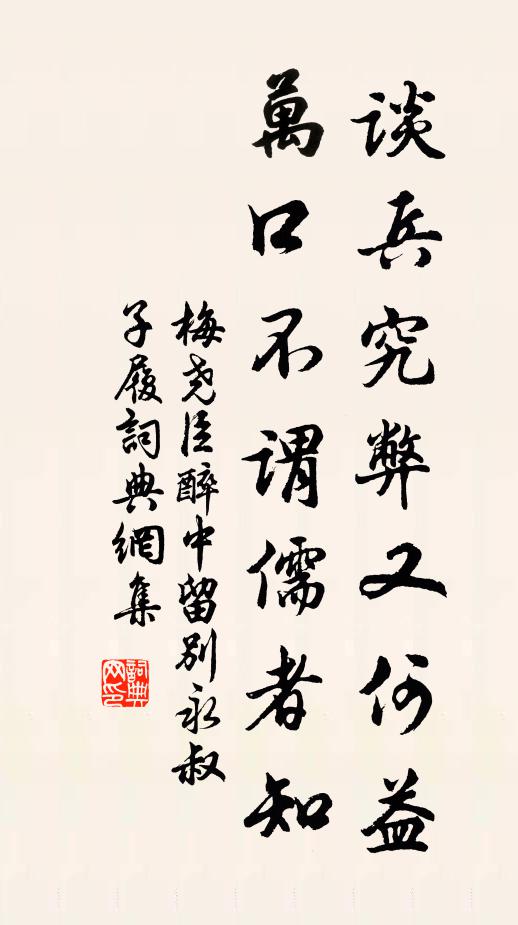 談兵究弊又何益
萬口不謂儒者知
梅堯臣醉中留別永叔
子履詞典網集
詞典网印